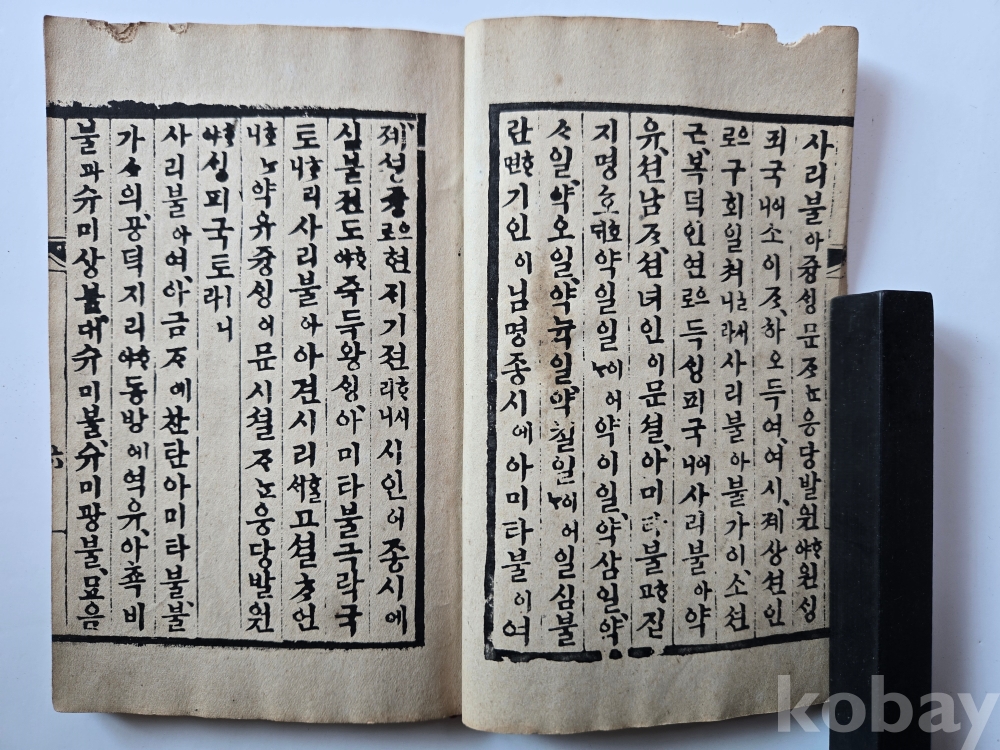 사리불아즁ᄉᆡᆼ문ᄌᆞᄂᆞᆫ응당발원ᄒᆞ야원ᄉᆡᆼ
피국이니소이ᄌᆞ하오득여여시졔상션인
으로구회일쳐ᄂᆞᆯᄉᆡ니라사리불아불가이소션
근복덕인연으로득ᄉᆡᆼ피국이니사리불아약
유션남ᄌᆞ션녀인이문셜아미타불ᄒᆞ고집
지명호호ᄃᆡ약일일이어나약이일약삼일약
ᄉᆞ일약오일약뉵일약칠일이어나일심불
란ᄒᆞ면기인이님명종시에아미타불이여
졔션즁으로현ᄌᆡ기젼ᄒᆞ시리니시인이종시에
심불젼도ᄒᆞ야즉득왕ᄉᆡᆼ아미타불극락국
토ᄒᆞ리니사리불아아견시리ᄒᆞᆯᄉᆡ고셜ᄎᆞ언
ᄒᆞ노니약유즁ᄉᆡᆼ이문시셜ᄌᆞᄂᆞᆫ응당발원
ᄒᆞ야ᄉᆡᆼ피국토ㅣ니라
사리불아여아금ᄌᆞ에찬탄아미타불불
가ᄉᆞ의공덕지리ᄒᆞ야동방에역유아촉비
불과슈미상불대슈미불슈미광불묘음
六
kobay